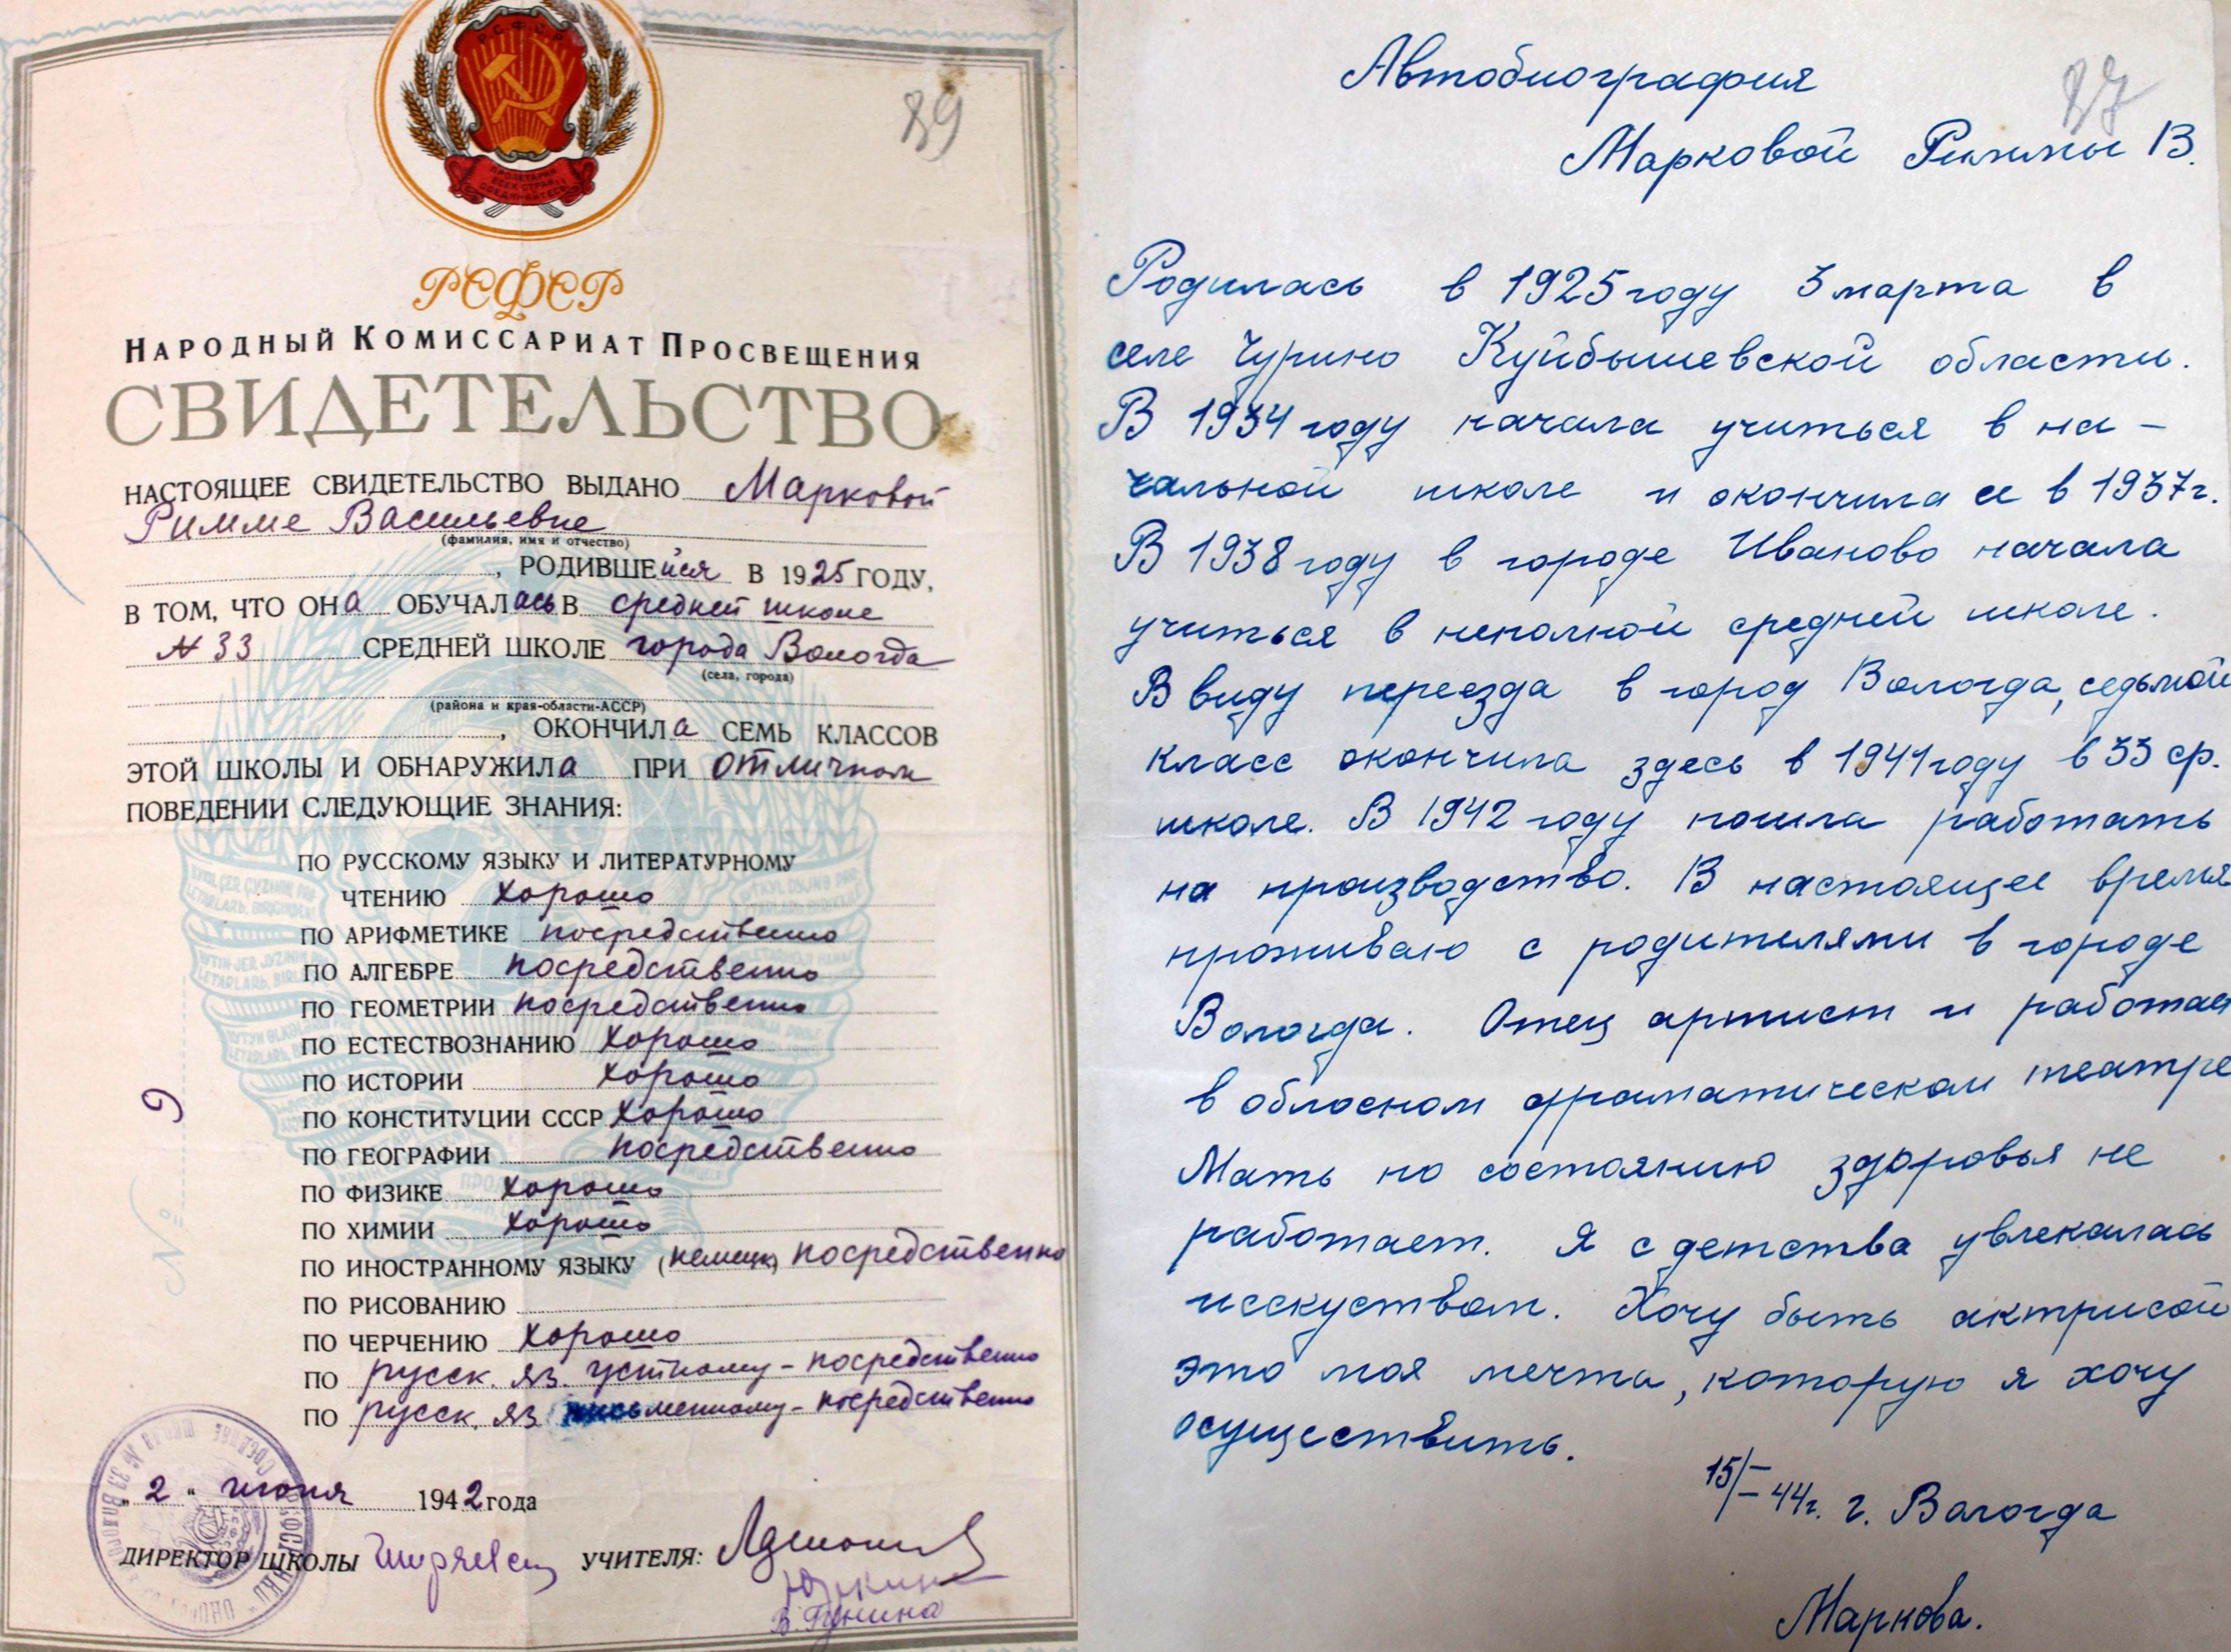 89
Р.С.Ф.С.Р.
ПРОЛЕТАРИИ
ВСЕХ СТРАН
СОЕДИНЯЙТЕСЬ
РСФСР
НАРОДНЫЙ КОМИССАРИАТ ПРОСВЕЩЕНИЯ
СВИДЕТЕЛЬСТВО
НАСТОЯЩЕЕ СВИДЕТЕЛЬСТВО ВЫДАНО Марковой
Римме Васильевне
(фамилия, имя и отчество)
, РОДИВШЕйся В 1925 ГОДУ,
В ТОМ, ЧТО ОНа ОБУЧАЛась В средней школе
№ 33 СРЕДНЕЙ ШКОЛЕ города Вологда
(села, города)
(района и края-области-АССР)
, ОКОНЧИЛа СЕМЬ КЛАССОВ
ЭТОЙ ШКОЛЫ И ОБНАРУЖИЛа ПРИ отличном
ПОВЕДЕНИИ СЛЕДУЮЩИЕ ЗНАНИЯ:
ПО РУССКОМУ ЯЗЫКУ И ЛИТЕРАТУРНОМУ
ЧТЕНИЮ хорошо
ПО АРИФМЕТИКЕ посредственно
ПО АЛГЕБРЕ посредственно
ПО ГЕОМЕТРИИ посредственно
ПО ЕСТЕСТВОЗНАНИЮ хорошо
ПО ИСТОРИИ хорошо
ПО КОНСТИТУЦИИ СССР хорошо
ПО ГЕОГРАФИИ посредственно
ПО ФИЗИКЕ хорошо
ПО ХИМИИ хорошо
ПО ИНОСТРАННОМУ ЯЗЫКУ (немецк) посредственно
ПО РИСОВАНИЮ
ПО ЧЕРЧЕНИЮ хорошо
ПО русск. яз. устному - посредственно
ПО русск. яз письменному - посредственно
„2“ июня 1942 года
ДИРЕКТОР ШКОЛЫ УЧИТЕЛЯ:
В. Пунина
87
Автобиография
Марковой Риммы В.
Родилась в 1925 году 3 марта в
селе Чурино Куйбышевской области.
В 1934 году начала учиться в на-
чальной школе и окончила ее в 1937г.
В 1938 году в городе Иваново начала
учиться в неполной средней школе.
В виду переезда в город Вологда, седьмой
класс окончила здесь в 1941 году в 33 ср.
школе. В 1942 году пошла работать
на производство. В настоящее время
проживаю с родителями в городе
Вологда. Отец артист и работает
в обласном драматическом театре
Мать по состоянию здоровья не
работает. Я с детства увлекалась
исскуством. Хочу быть актрисой
это моя мечта, которую я хочу
осуществить.
15/I-44г. г. Вологда
Маркова.